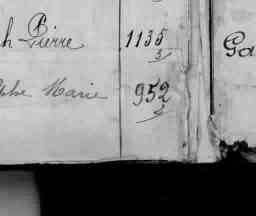 h Pierre 1135
3
Ga
phe Marie 952
2